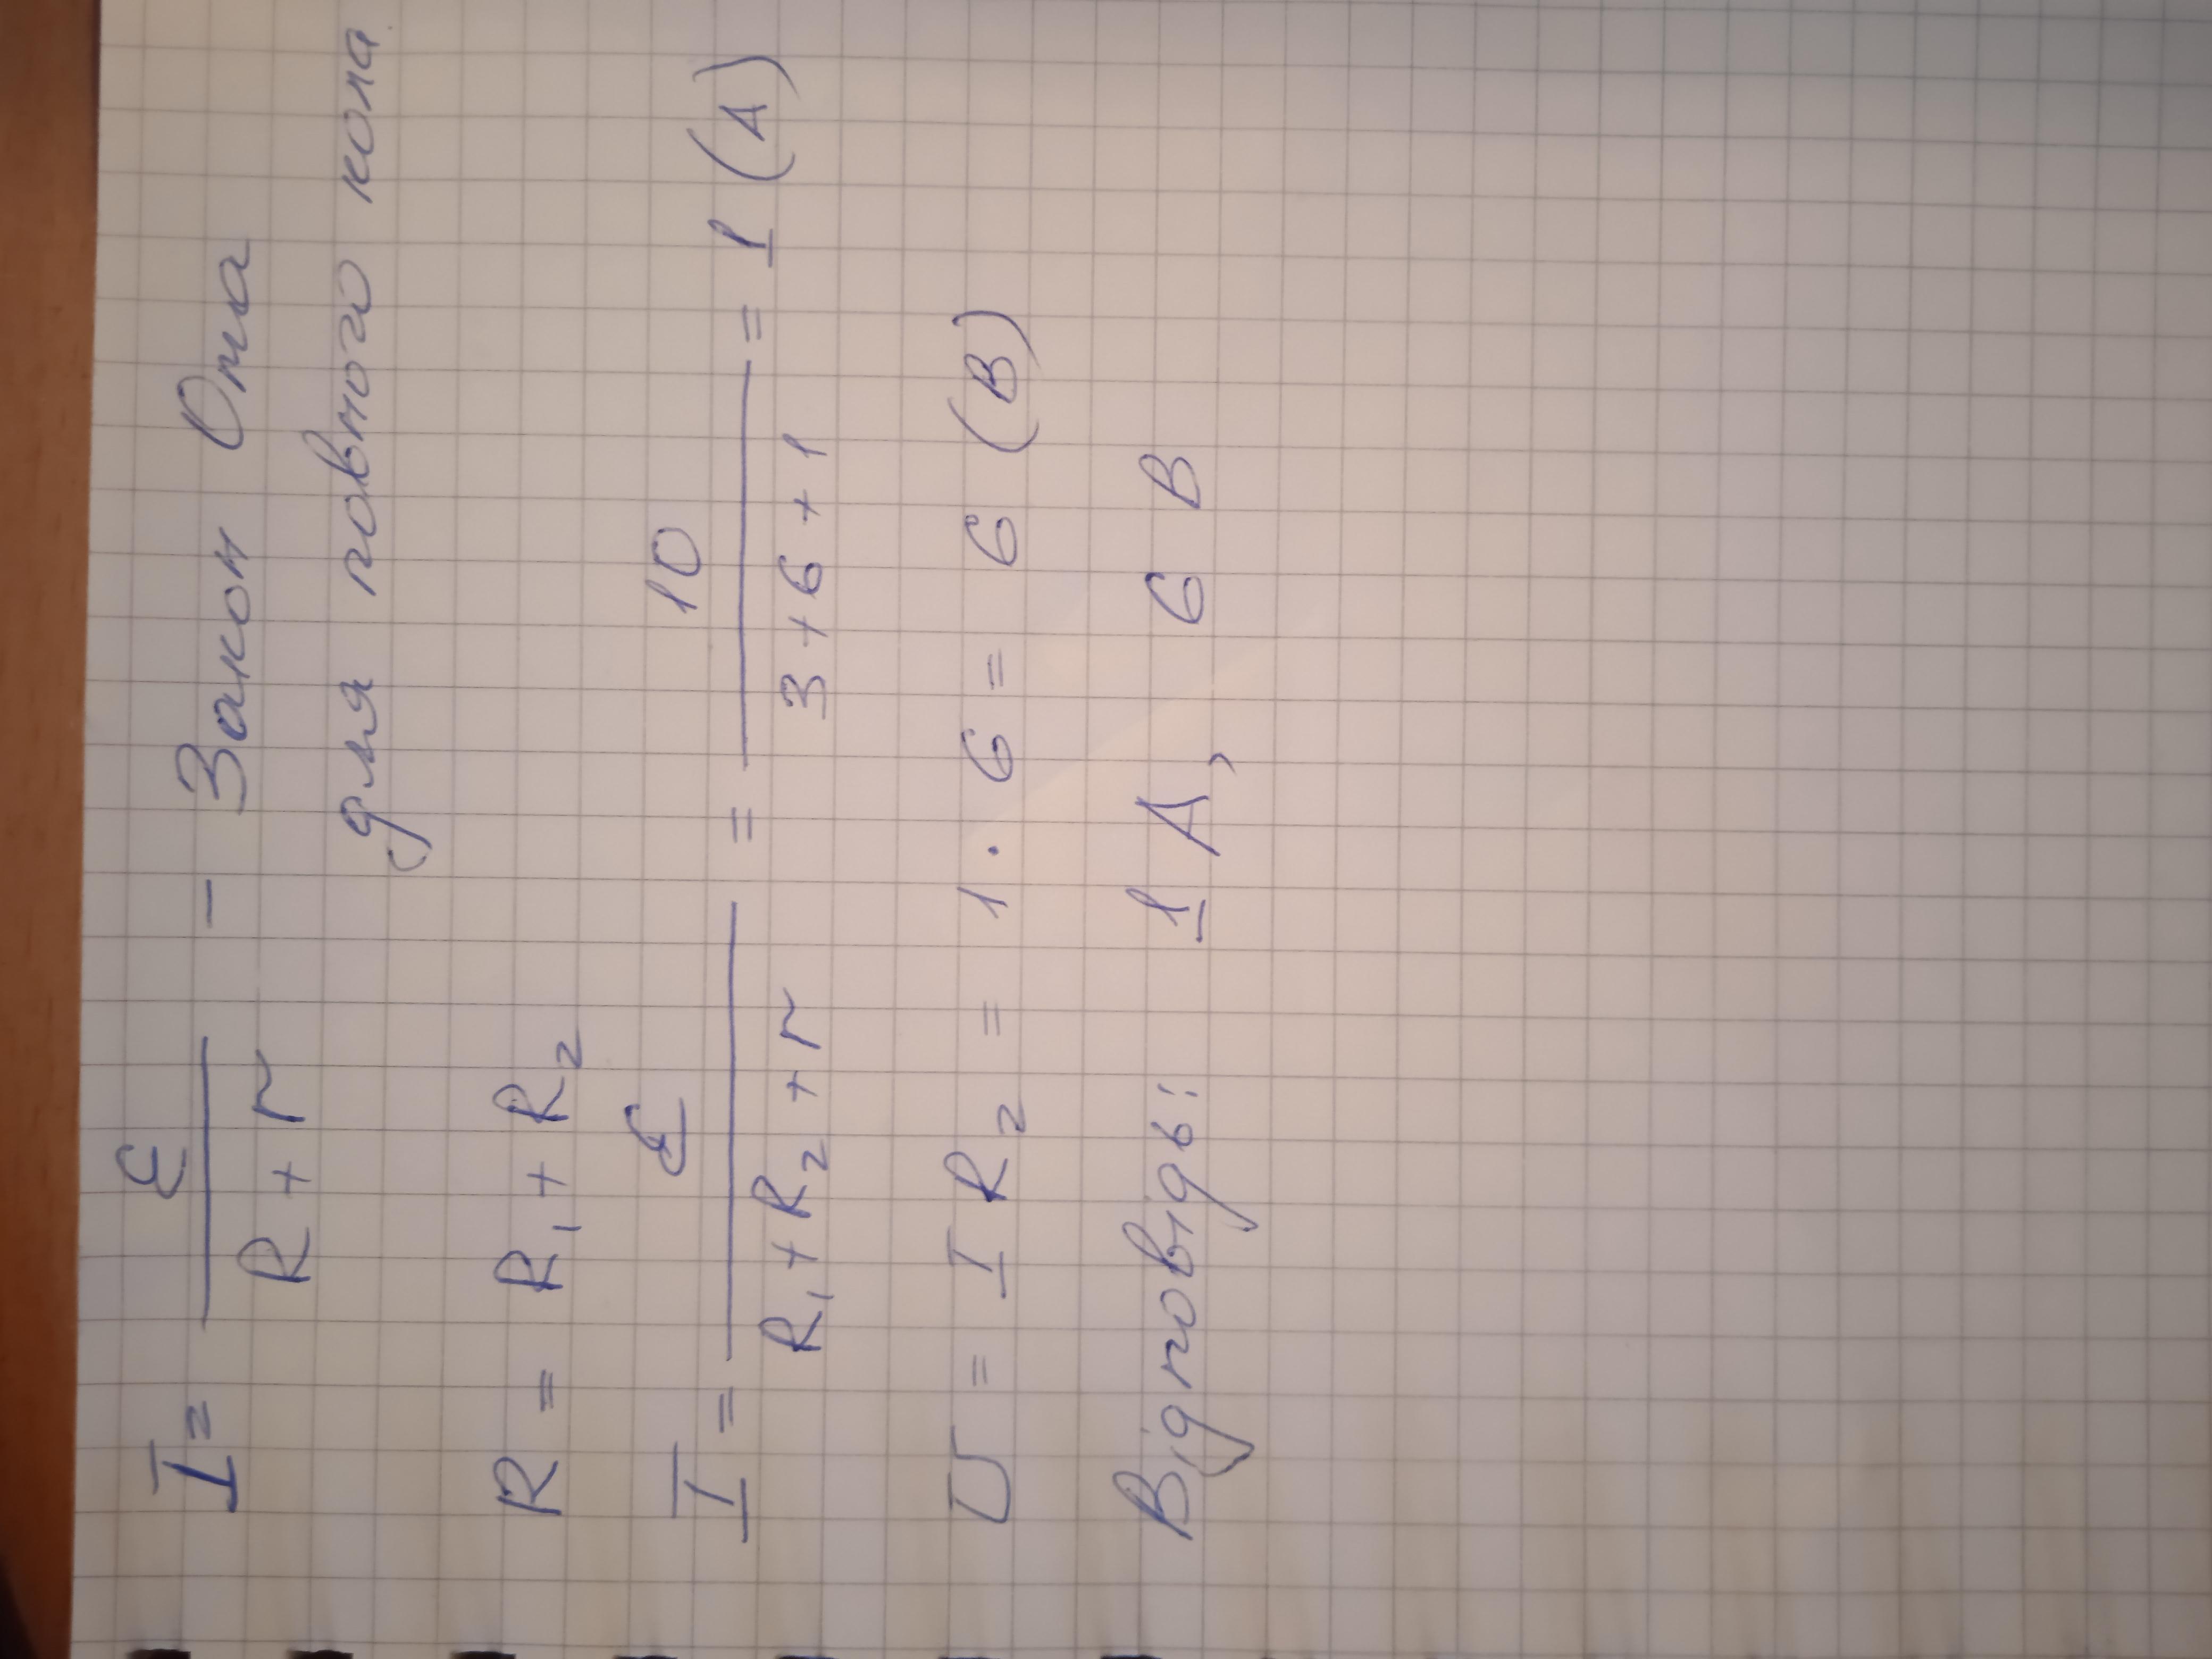 I = ε / (R + r) - Закон Ома
для повного кола
R = R₁ + R₂
I = ε / (R₁ + R₂ + r) = 10 / (3 + 6 + 1) = 1 (А)
U = I R₂ = 1 · 6 = 6 (В)
Відповідь: 1 А, 6 В